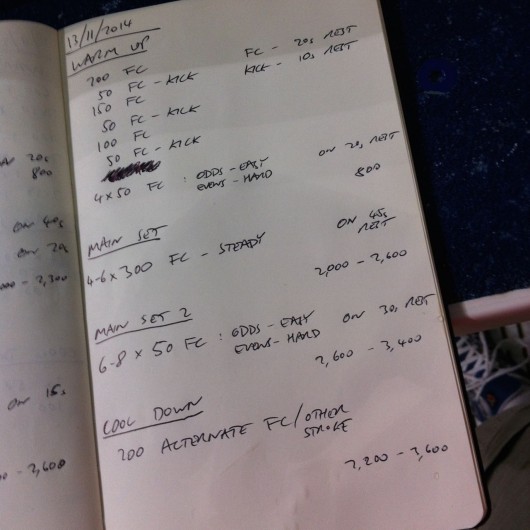 13/11/2014
WARM UP
200 FC FC - 20s REST
50 FC - KICK KICK - 10s REST
150 FC
50 FC - KICK
100 FC
50 FC - KICK
4x50 FC : ODDS - EASY ON 20s REST
EVENS - HARD 800
MAIN SET
4-6x300 FC - STEADY ON 45s
REST
2,000 - 2,600
MAIN SET 2
6-8 x 50 FC : ODDS - EASY ON 30s REST
EVENS - HARD
2,600 - 3,400
COOL DOWN
200 ALTERNATE FC/OTHER
STROKE
- 3,600
20s
800
ON 40s
ON 20s
ON 15s
- 2,600